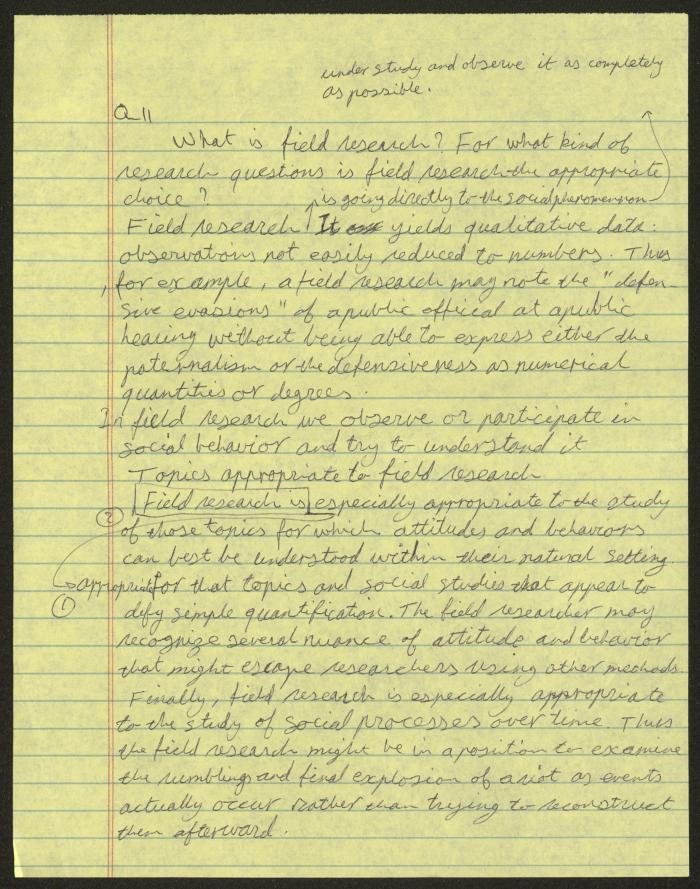 under study and observe it as completely
as possible.
Q 11
What is field research? For what kind of
research questions is field research the appropriate
choice?
is going directly to the social phenomenon
Field research It yields qualitative data:
observations not easily reduced to numbers. Thus
, for example, a field research may note the "defen-
sive evasions" of a public offical at a public
hearing without being able to express either the
paternalism or the defensiveness as numerical
quantities or degrees.
In field research we observe or participate in
social behavior and try to understand it
Topics appropriate to field research
Field research is especially appropriate to the study
2 of those topics for which attitudes and behaviors
can best be understood within their natural setting.
appropriate for that topics and social studies that appear to
1 defy simple quantification. The field researcher may
recognize several nuance of attitude and behavior
that might escape researchers using other methods.
Finally, field research is especially appropriate
to the study of social processes over time. Thus
the field research might be in a position to examine
the rumblings and final explosion of a riot as events
actually occur rather than trying to reconstruct
them afterward.